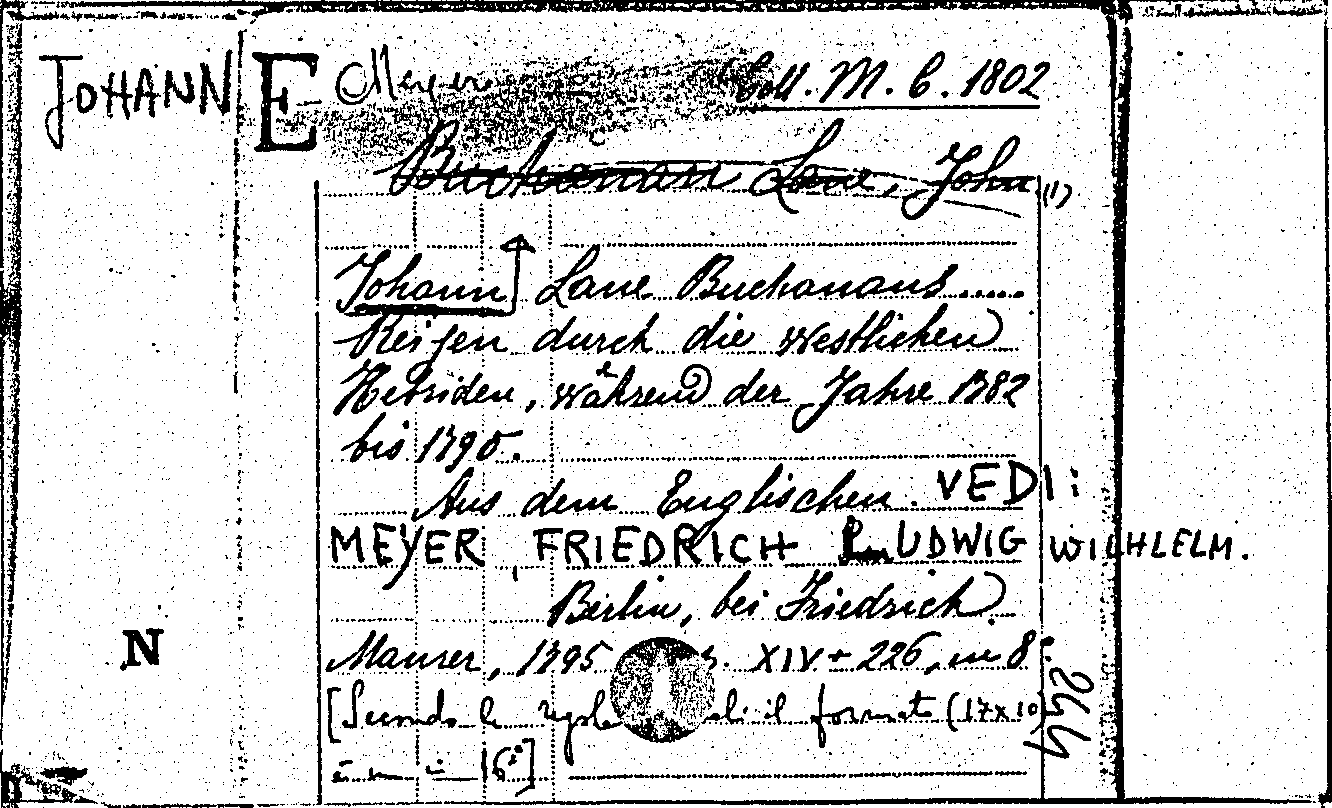 JOHANN E Meyer Coll. M. C. 1802
Buchanan Lane, John (1)
Johann Lane Buchanans ......
Reisen durch die westlichen
Hebriden, während der Jahre 1782
bis 1790.
Aus dem Englischen. VEDI:
MEYER, FRIEDRICH LUDWIG WILHLELM.
Berlin, bei Friedrich
N
Maurer, 1795 XIV + 226, in 8°.
[Secondo le regole il formato (17x10)
è in 16°]
244